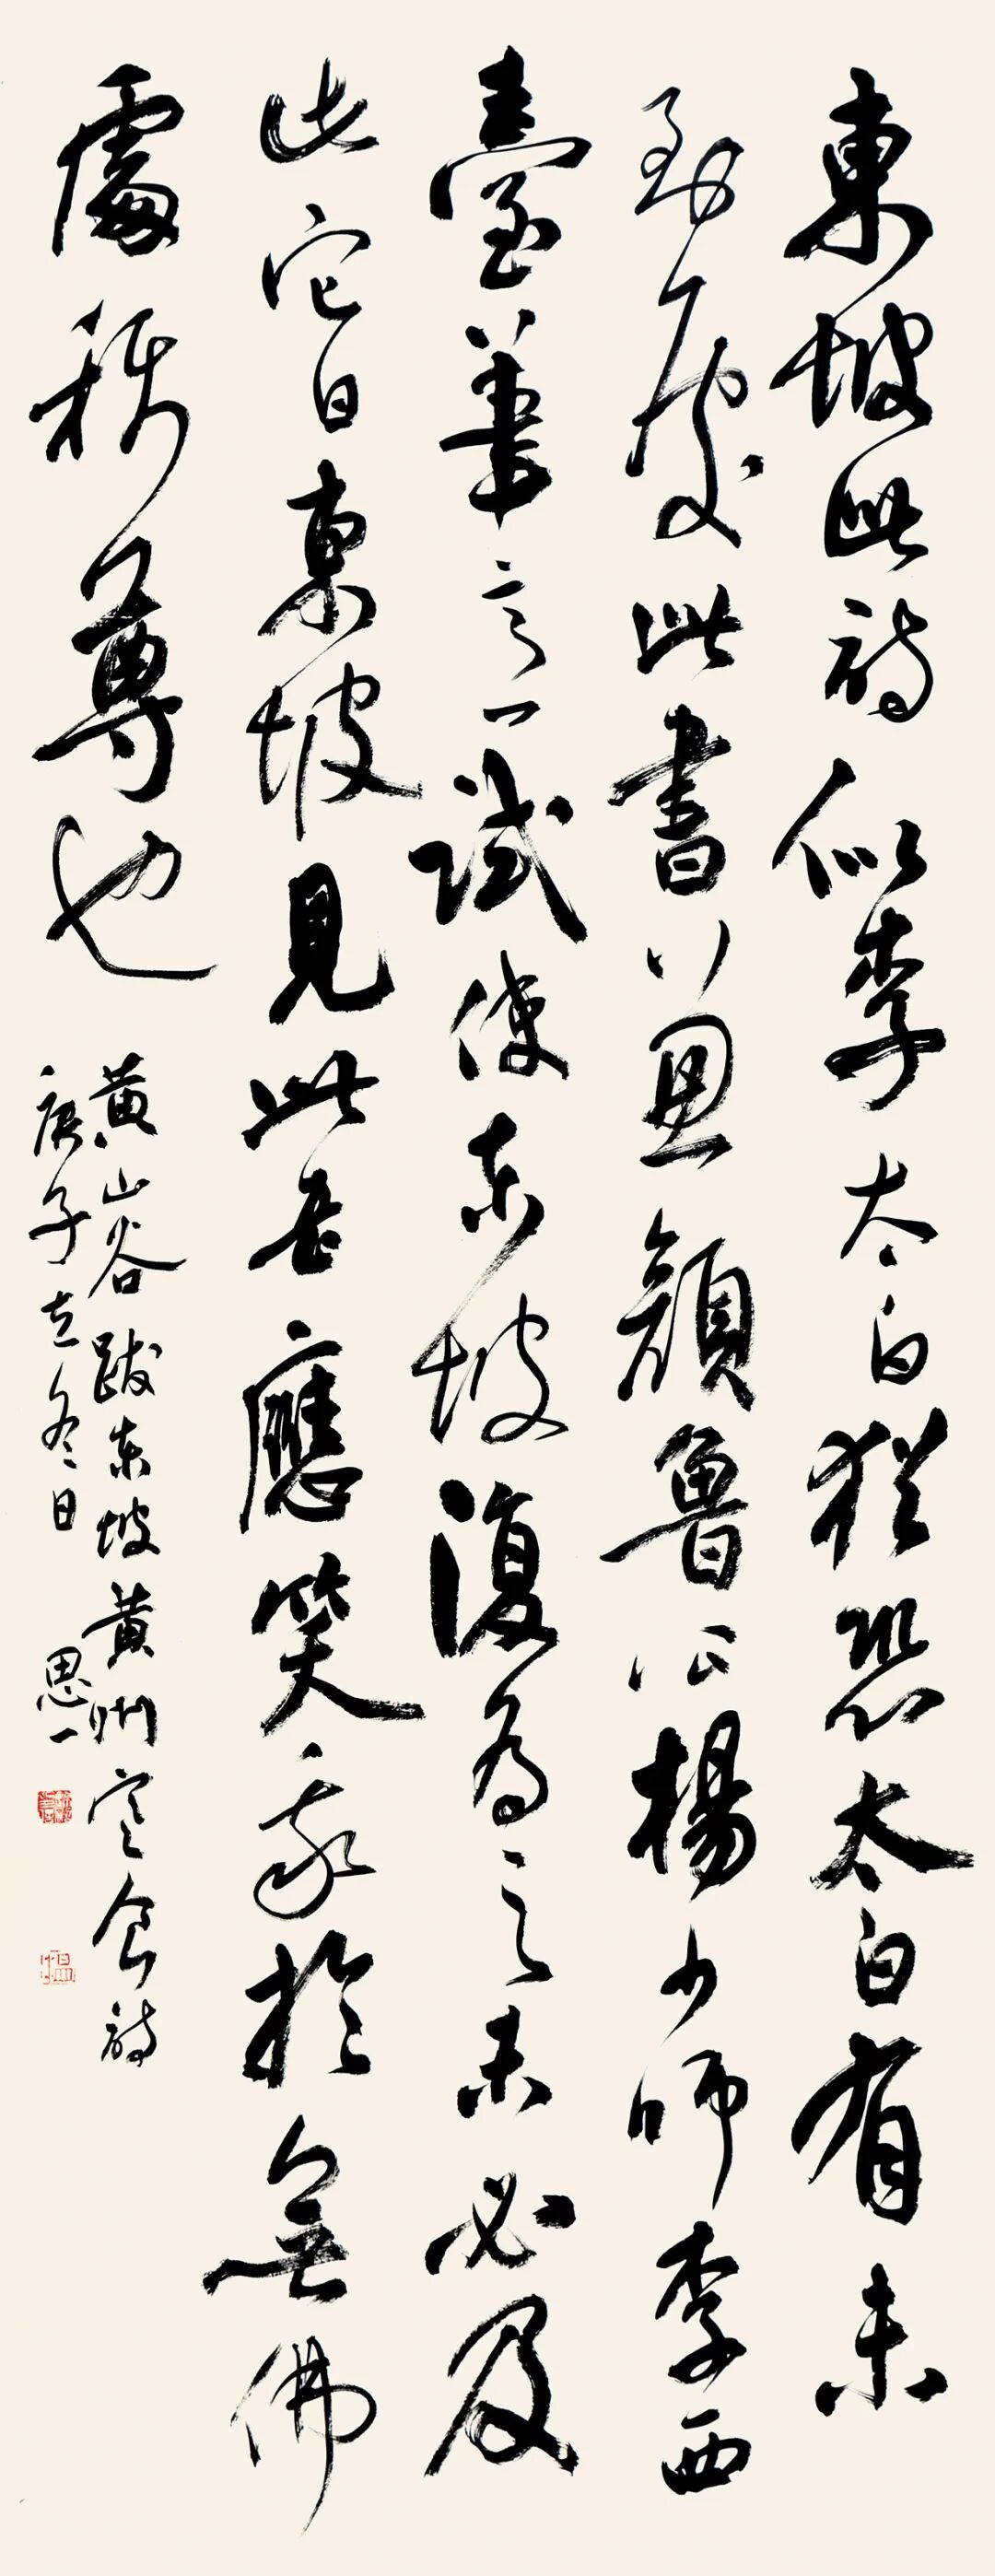 東坡此詩似李太白猶恐太白有未
到處此書兼顏魯公楊少師李西
臺筆意試使東坡復為之未必及
此它日東坡見此書應笑我於無佛
處稱尊也
黃山谷跋東坡黃州寒食詩
庚子立冬日 思一